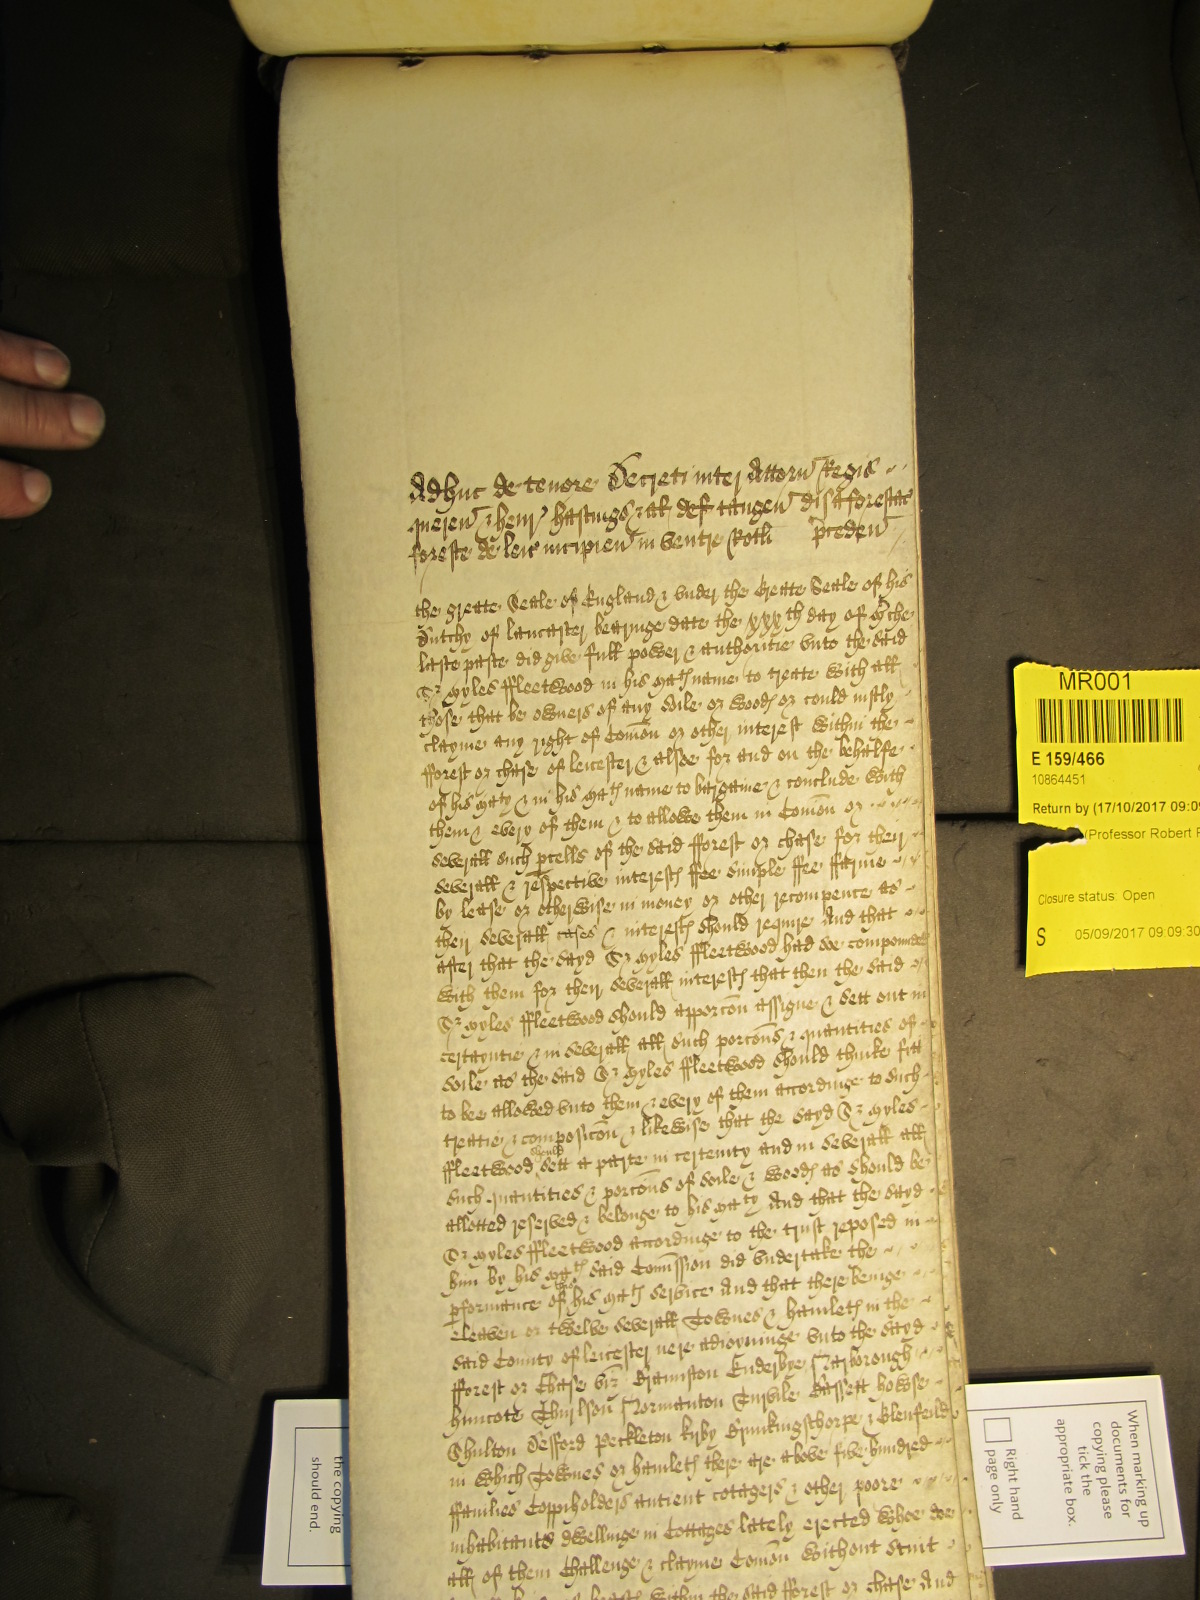 Adhuc de tenore Decreti inter Attorn Regis
queren & henr hastings & al def tangen disafforestac
foreste de leic incipien in ventre Rotli preceden
the greate Seale of England & vnder the Greate Seale of his
Dutchy of Lancaster bearinge date the xxxth day of Mche
laste paste did give full power & authoritie vnto the said
Sr Myles ffleetwood in his Mats name to treate with all
those that be owners of any soile or woods or could iustly
clayme any right of Comon or other interest within the
fforest or chase of leicester & alsoe for and on the behalfe
of his Maty & in his Mats name to bargaine & conclude with
them & every of them & to allowe them in Comon or
severall such pcells of the said fforest or chase for their
severall & respective interests ffee simple ffee ffarme
by lease or otherwise in money or other recompence as
their severall cases & interests should require And that
after that the sayd Sr Myles ffleetwood had soe compounded
with them for their severall interests that then the said
Sr Myles ffleetwood should apporcon assigne & sett out in
certayntie & in severall all such porcons & quantities of
soile as the said Sr Myles ffleetwood should thinke fitt
to bee allowed vnto them & every of them accordinge to such
treatie & composicon & likewise that the sayd Sr Myles
ffleetwood should sett a parte in certeinty and in severall all
such quantities & porcons of soile & woods as should be
allotted reserved & belonge to his Maty And that the sayd
Sr Myles ffleetwood accordinge to the trust reposed in
him by his Mats said Comission did vndertake the
pformance of this his Mats service And that there beinge
eleaven or twelve severall Townes & hamletts in the
said County of leicester nere adioyninge vnto the sayd
fforest or Chase vizt Braunston Enderbye Narborough
huncote Thurlson Normanton Turvile Bassett howse
Shulton Desford Peckleton Kirby Brunkingsthorpe & Glenfeild
in which Townes or hamletts there are above five hundred
ffamilies Coppiholders antient cotagers & other poore
inhabitants dwellinge in Cottages lately erected whoe doe
all of them Challenge & clayme Comon without stint
within the said fforest or chase And
MR001
E 159/466
10864451
Return by (17/10/2017 09:09
(Professor Robert
Closure status: Open
S 05/09/2017 09:09:30
the copying
should end.
When marking up
documents for
copying please
tick the
appropriate box.
Right hand
page only